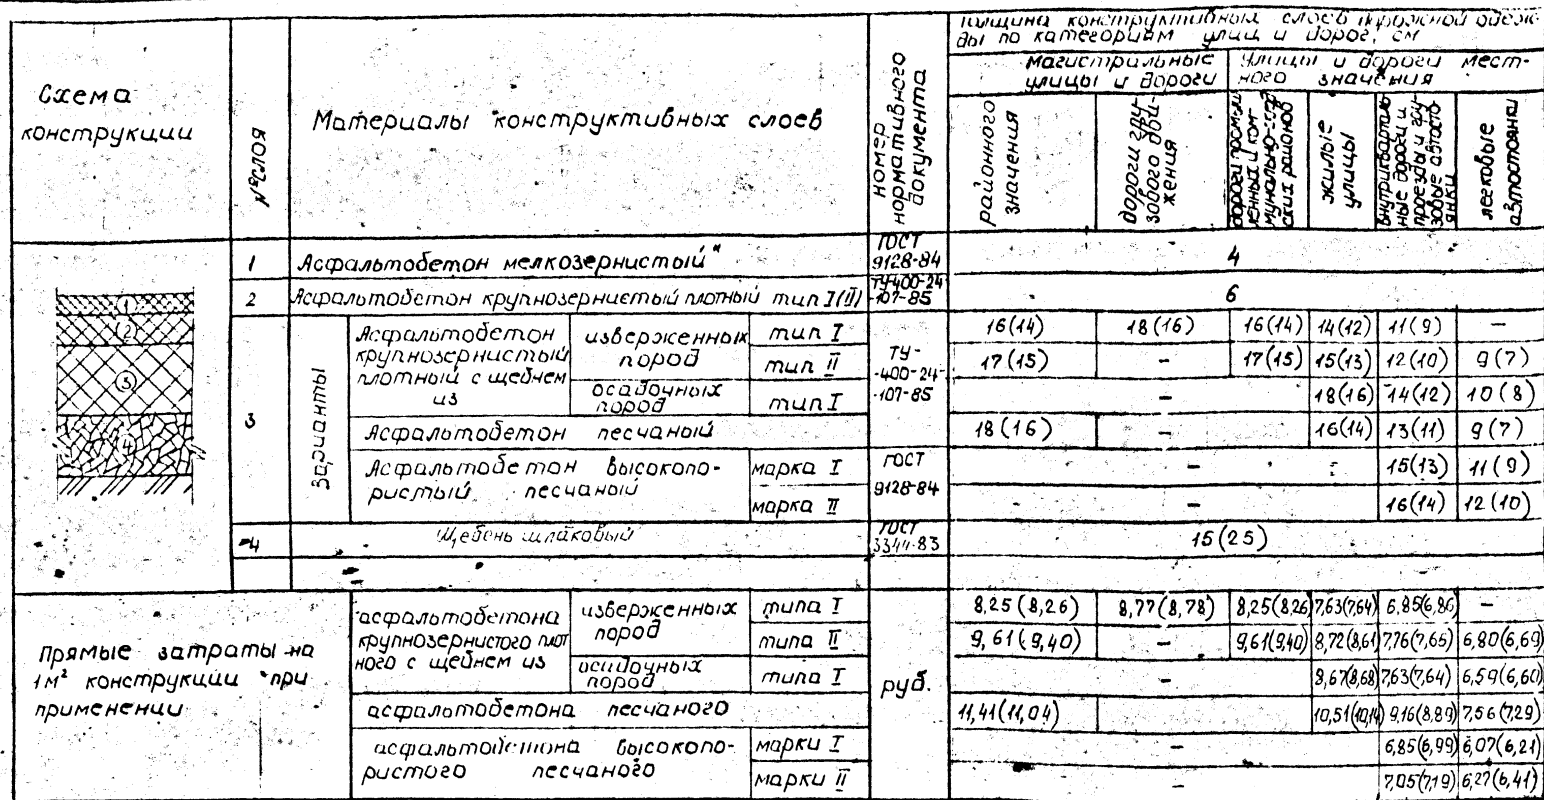 Схема
конструкции
№ слоя
Материалы конструктивных слоев
номер
нормативного
документа
толщина конструктивных слоев дорожной одеж-
ды по категориям улиц и дорог, см
магистральные
улицы и дороги
Улицы и дороги мест-
ного значения
районного
значения
дороги гру-
зового дви-
жения
дороги промыш-
ленных и ком-
мунально-
ских районов
жилые
улицы
внутрикварталь-
ные дороги и
проезды и гру-
зовые автосто-
янки
легковые
автостоянки
1 Асфальтобетон мелкозернистый ГОСТ 9128-84 4
2 Асфальтобетон крупнозернистый плотный тип I(II) ТУ400-24-107-85 6
1
2
3
4
3
варианты
Асфальтобетон
крупнозернистый
плотный с щебнем
из
изверженных
пород
тип I 16(14) 18(16) 16(14) 14(12) 11(9) —
тип II 17(15) - 17(15) 15(13) 12(10) 9(7)
осадочных
пород
тип I - 18(16) 14(12) 10(8)
ТУ-
-400-24-
-107-85
Асфальтобетон песчаный 18(16) - 16(14) 13(11) 9(7)
Асфальтобетон высокопо-
ристый песчаный
марка I - - 15(13) 11(9)
марка II - 16(14) 12(10)
ГОСТ
9128-84
4 Щебень шлаковый ГОСТ 3344-83 15(25)
Прямые затраты на
1м² конструкции при
применении
асфальтобетона
крупнозернистого плот
ного с щебнем из
изверженных
пород
типа I 8,25(8,26) 8,77(8,78) 8,25(8,26) 7,63(7,64) 6,85(6,86) —
типа II 9,61(9,40) - 9,61(9,40) 8,72(8,61) 7,76(7,65) 6,80(6,69)
осадочных
пород
типа I - 8,67(8,68) 7,63(7,64) 6,59(6,60)
руб.
асфальтобетона песчаного 11,41(11,04) 10,51(10,14) 9,16(8,89) 7,56(7,29)
асфальтобетона высокопо-
ристого песчаного
марки I - 6,85(6,99) 6,07(6,21)
марки II - 7,05(7,19) 6,27(6,41)